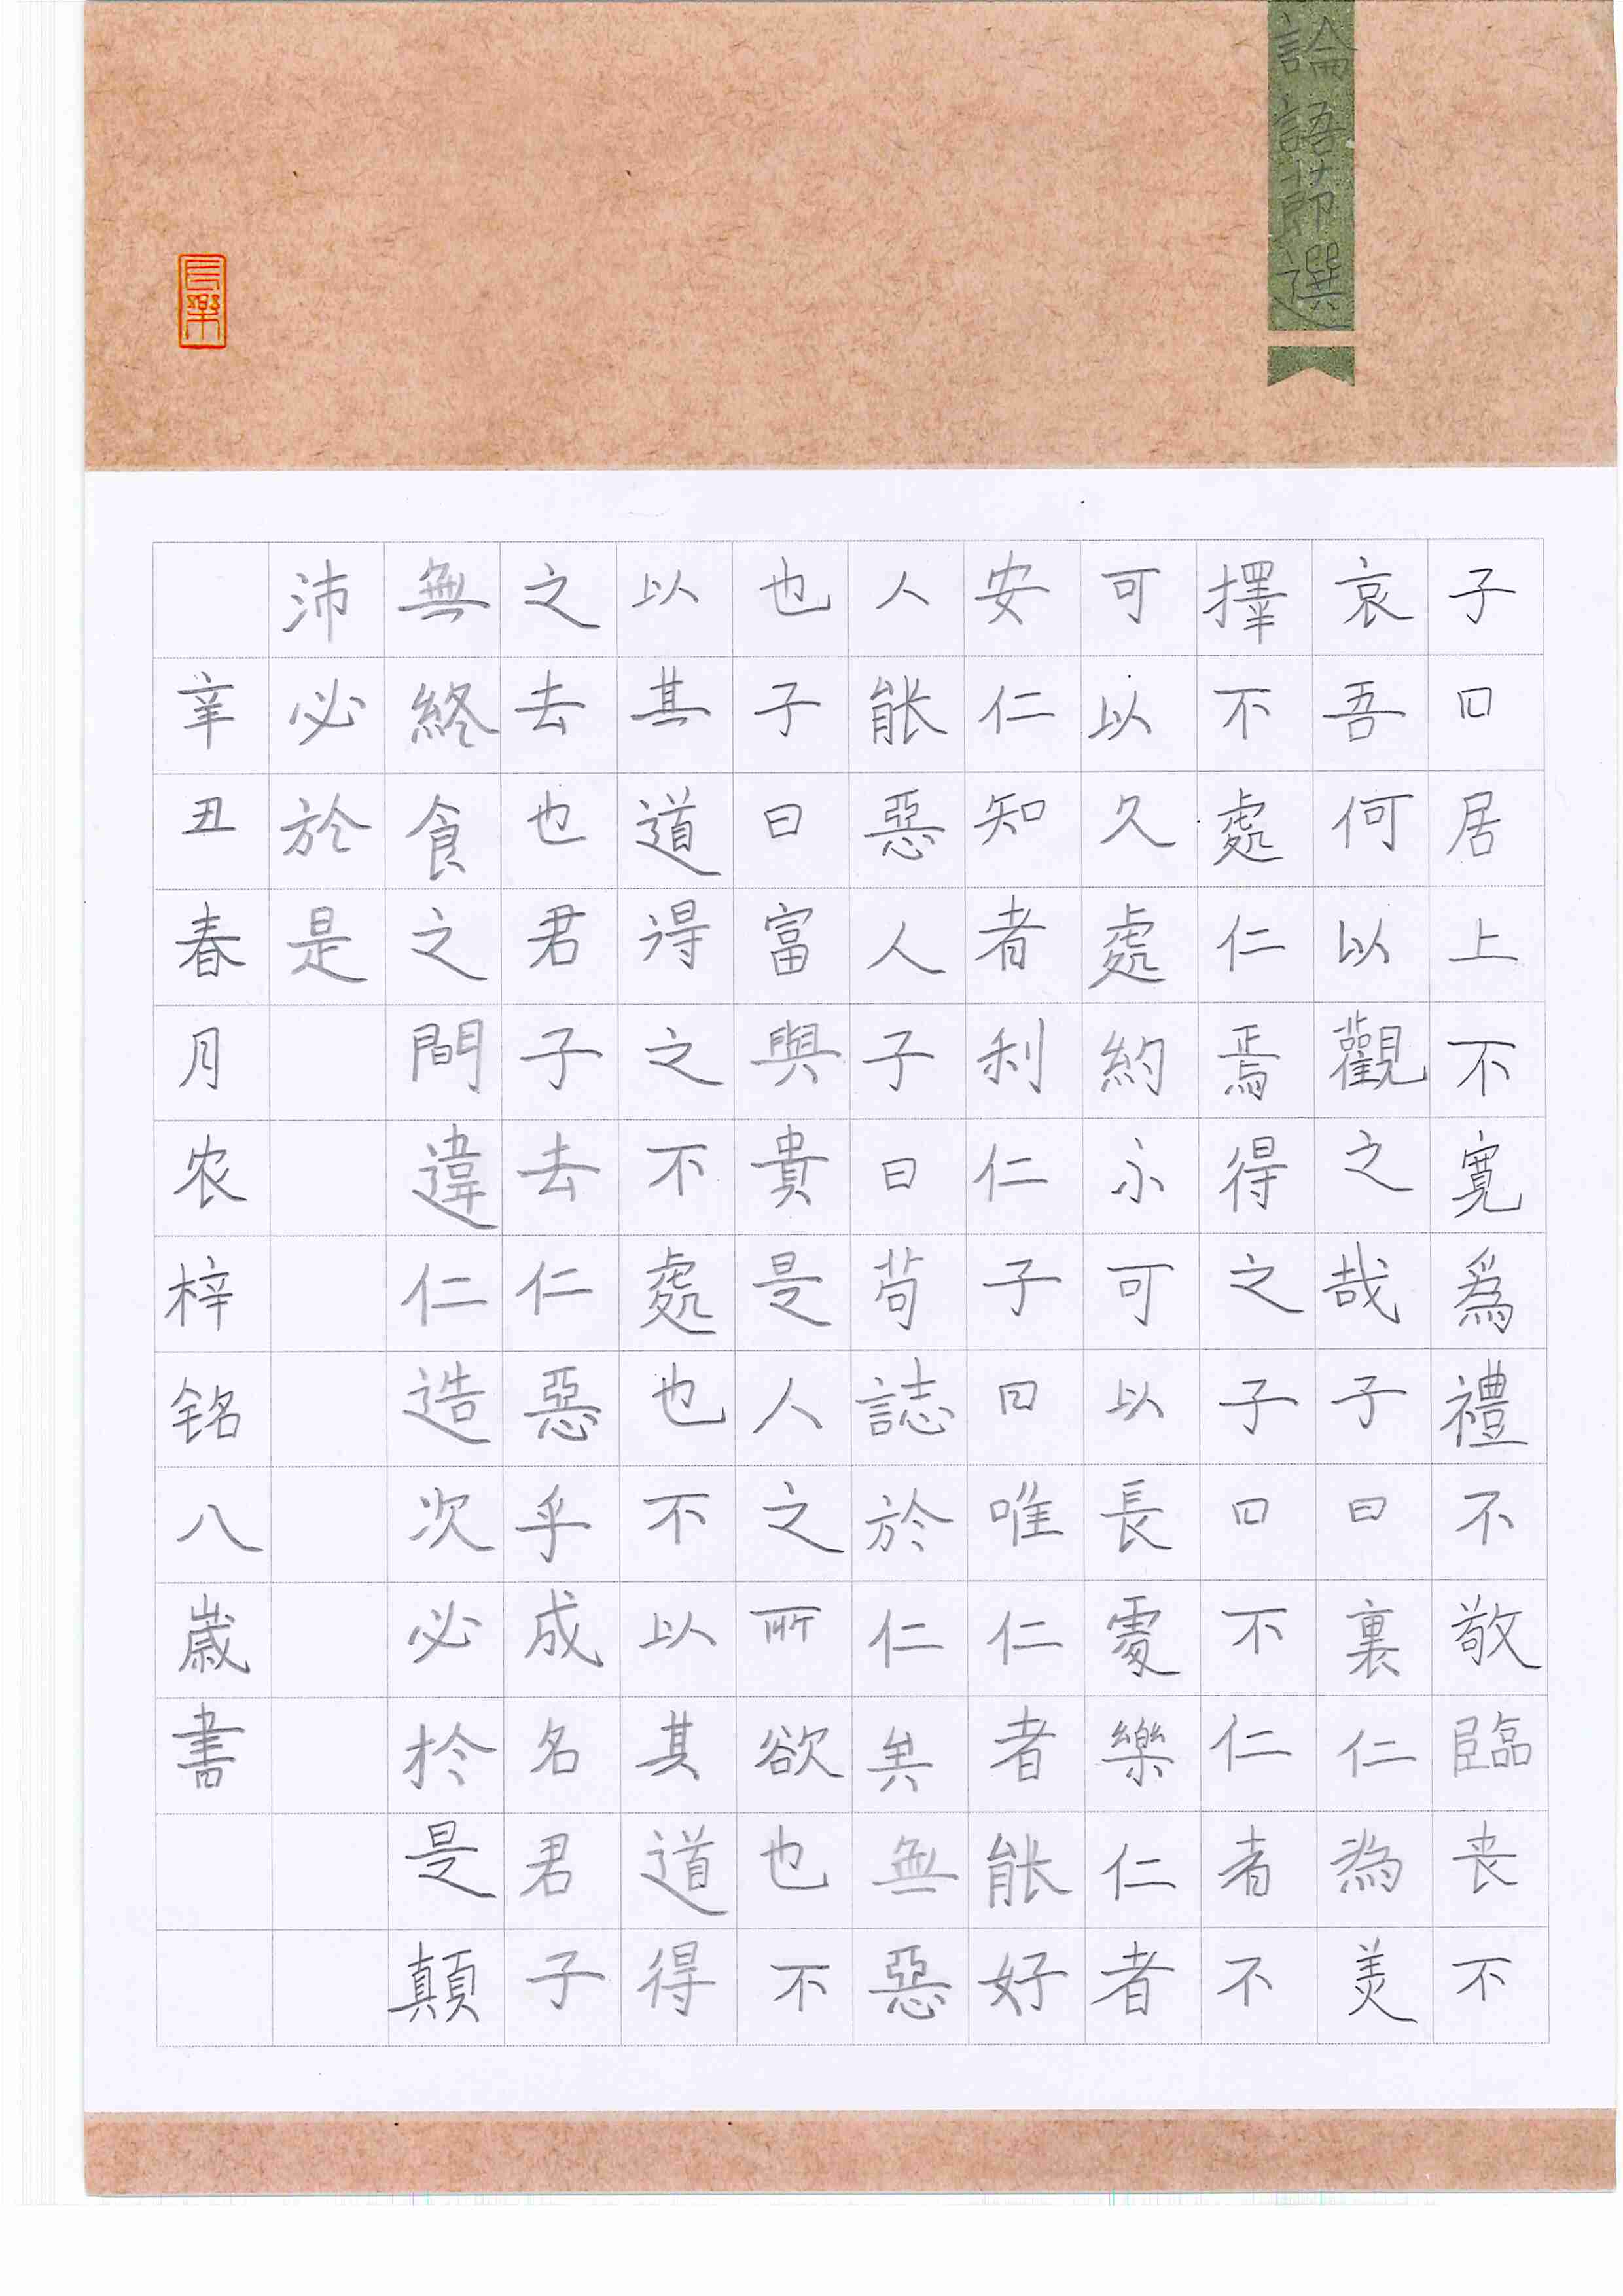 論語節選
子曰居上不寬爲禮不敬臨丧不
哀吾何以觀之哉子曰裏仁為美
擇不處仁焉得之子曰不仁者不
可以久處約不可以長處樂仁者
安仁知者利仁子曰唯仁者能好
人能惡人子曰苟誌於仁矣無惡
也子曰富與貴是人之所欲也不
以其道得之不處也不以其道得
之去也君子去仁惡乎成名君子
無終食之間違仁造次必於是顛
沛必於是
辛丑春月农梓铭八歳書
長樂